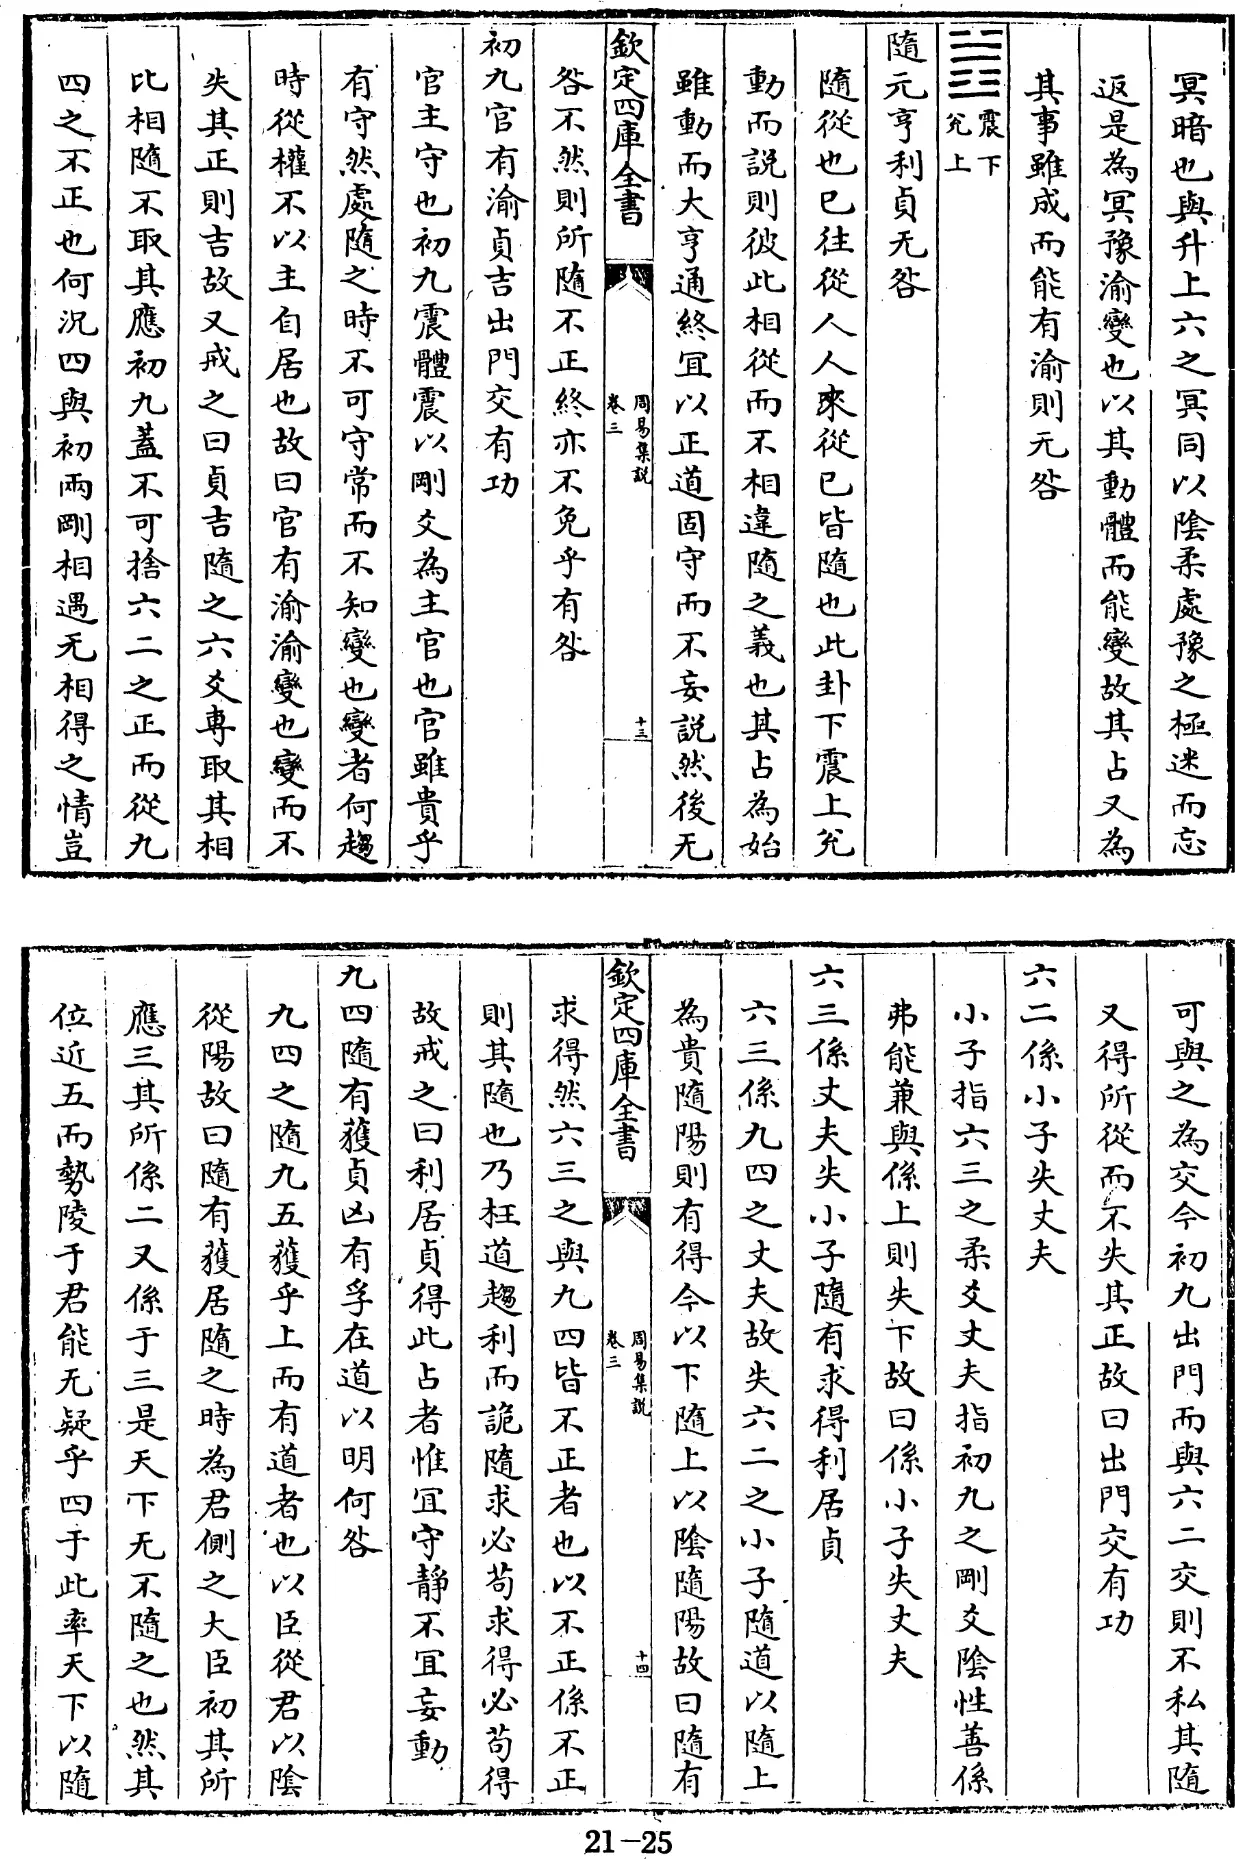 冥暗也與升上六之冥同以陰柔處豫之極迷而忘
返是為冥豫渝變也以其動體而能變故其占又為
其事雖成而能有渝則无咎
震下
兊上
隨元亨利貞无咎
隨從也已往從人人來從已皆隨也此卦下震上兊
動而説則彼此相從而不相違隨之義也其占為始
雖動而大亨通終宜以正道固守而不妄説然後无
欽定四庫全書
周易集説
卷三
十三
咎不然則所隨不正終亦不免乎有咎
初九官有渝貞吉出門交有功
官主守也初九震體震以剛爻為主官也官雖貴乎
有守然處隨之時不可守常而不知變也變者何趨
時從權不以主自居也故曰官有渝渝變也變而不
失其正則吉故又戒之曰貞吉隨之六爻專取其相
比相隨不取其應初九蓋不可捨六二之正而從九
四之不正也何況四與初兩剛相遇无相得之情豈
可與之為交今初九出門而與六二交則不私其隨
又得所從而不失其正故曰出門交有功
六二係小子失丈夫
小子指六三之柔爻丈夫指初九之剛爻陰性善係
弗能兼與係上則失下故曰係小子失丈夫
六三係丈夫失小子隨有求得利居貞
六三係九四之丈夫故失六二之小子隨道以隨上
為貴隨陽則有得今以下隨上以陰隨陽故曰隨有
欽定四庫全書
周易集説
卷三
十四
求得然六三之與九四皆不正者也以不正係不正
則其隨也乃枉道趨利而詭隨求必苟求得必苟得
故戒之曰利居貞得此占者惟宜守靜不宜妄動
九四隨有獲貞凶有孚在道以明何咎
九四之隨九五獲乎上而有道者也以臣從君以陰
從陽故曰隨有獲居隨之時為君側之大臣初其所
應三其所係二又係于三是天下无不隨之也然其
位近五而勢陵于君能无疑乎四于此率天下以隨
21-25